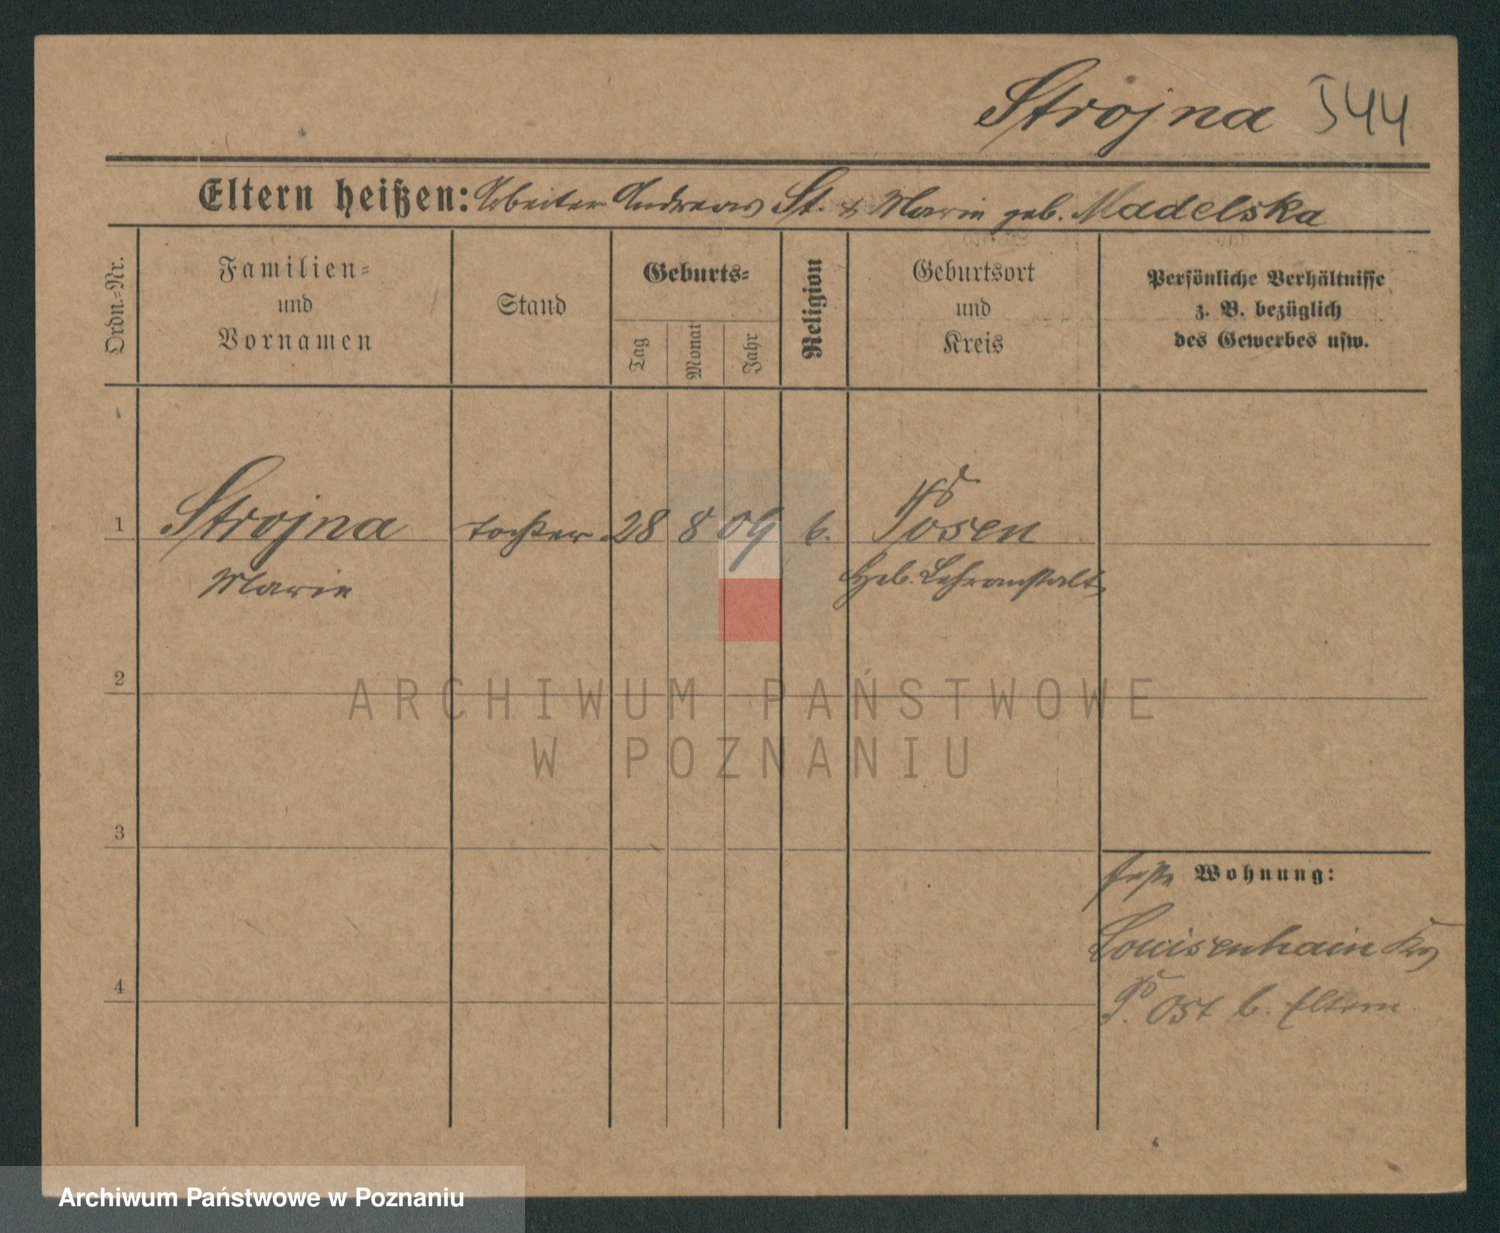 Strojna 544
Eltern heißen: Arbeiter Andreas St. & Marie geb. Madelska
Ordn.-Nr.
Familien-
und
Vornamen
Stand
Geburts-
Tag
Monat
Jahr
Religion
Geburtsort
und
Kreis
Persönliche Verhältnisse
z. B. bezüglich
des Gewerbes usw.
1 Strojna Tochter 28 8 09 k. Posen
Marie Heb. Lehranstalt
2
ARCHIWUM PAŃSTWOWE
W POZNANIU
3
feste Wohnung:
Louisenhain Krs
4
P. Ost b. Eltern
Archiwum Państwowe w Poznaniu